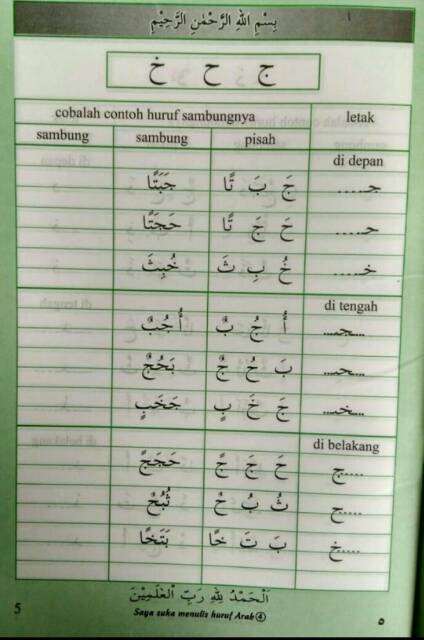 بِسْمِ اللهِ الرَّحْمٰنِ الرَّحِيْمِ
ج ح خ
cobalah contoh huruf sambungnya letak
sambung sambung pisah
di depan
جـ..... جَ بَ تًا جَبَتًا
حـ..... حَ جَ تًا حَجَتًا
خـ..... خُ بِ ثَ خُبِثَ
di tengah
...ـجـ... أُ جُ بٌ أُجُبٌ
...ـحـ... بَ حُ جٌ بَحُجٌ
...ـخـ... جَ خَ بٍ جَخَبٍ
di belakang
.....ج حَ جَ جً حَجَجً
.....ح ثُ بُ حٌ ثُبُحٌ
.....خ بَ تَ خًا بَتَخًا
اَلْحَمْدُ لِلّٰهِ رَبِّ الْعٰلَمِيْنَ
5 Saya suka menulis huruf Arab ④ ٥